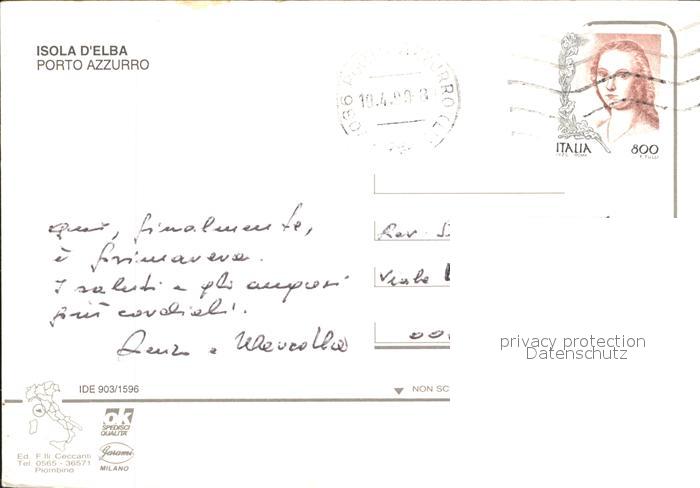 ISOLA D'ELBA
PORTO AZZURRO
10.4.99-8
ITALIA 800
I.P.Z.S. ROMA
F. TULLI
qui, finalmente,
è primavera.
I saluti e gli auguri
più cordiali.
Renzo e Marcella
Viale
00
privacy protection
Datenschutz
IDE 903/1596
NON SC
ok
SPEDISCI
QUALITÀ
Garami
MILANO
Ed. F.lli Ceccanti
Tel. 0565 - 36571
Piombino